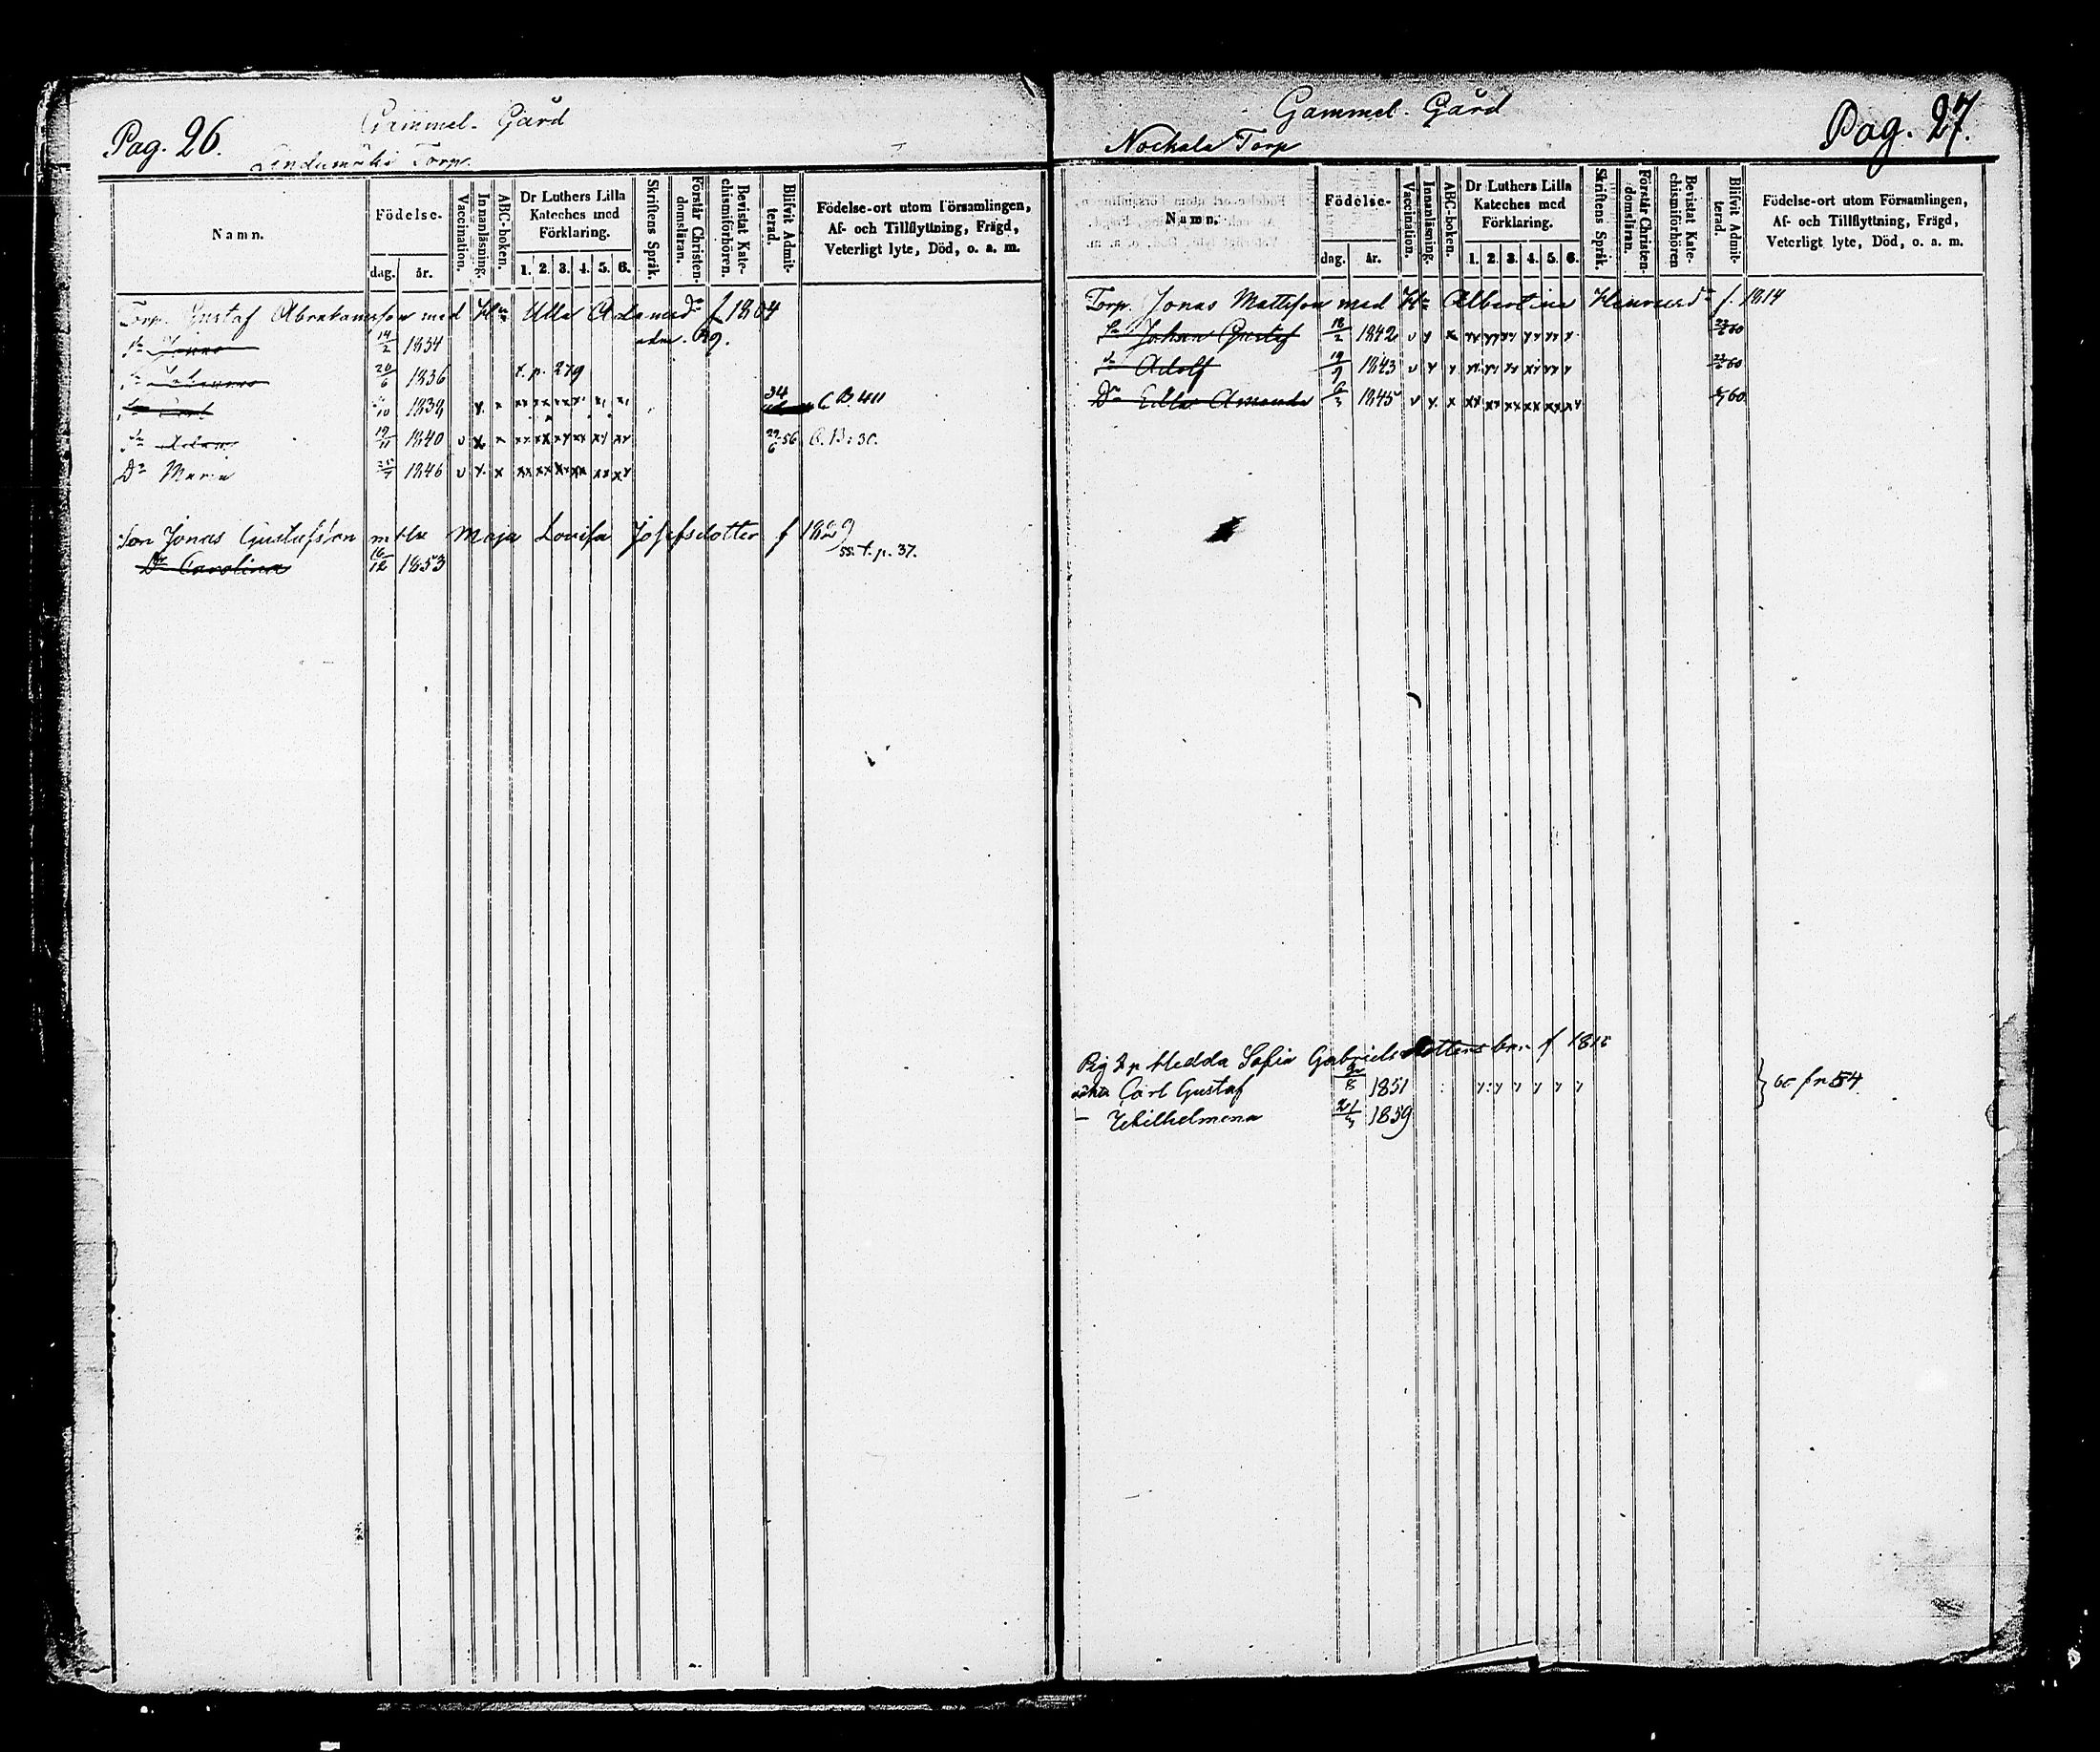 Pag. 26.
Gammel-Gård
Torp.
Namn.
Födelse-
dag.
år.
Vaccination.
Innanläsning.
ABC-boken.
Dr Luthers Lilla
Kateches med
Förklaring.
1. 2. 3. 4. 5. 6.
Skriftens Språk.
Förstår Christen-
domsläran.
Bevistat Kate-
chismiförhören.
Blifvit Admit-
terad.
Födelse-ort utom Församlingen,
Af- och Tillflyttning, Frägd,
Veterligt lyte, Död, o. a. m.
Torp. Gustaf Abrahamsson med Hu Ulla Adamsdr f 1804
Sn Jonas 14/2 1834 adm.
Sn Johannes 20/6 1836 t. p. 279
Sn Carl 1838 x x xx xx xx xx 34 C B 411
Sn Adam 19/11 1840 v x x xx xx xx xx xx xx 29/6 56 C. B. 30.
Dr Maria 1846 v x x xx xx xx xx xx xx
Son Jonas Gustafsson m Hu Maja Lovisa Josefsdotter f 1829
Dr Carolina 16/12 1853 ss. t. p. 37.
Gammel-Gård
Nockala Torp
Pag. 27.
Namn.
Födelse-
dag.
år.
Vaccination.
Innanläsning.
ABC-boken.
Dr Luthers Lilla
Kateches med
Förklaring.
1. 2. 3. 4. 5. 6.
Skriftens Språk.
Förstår Christen-
domsläran.
Bevistat Kate-
chismiförhören
Blifvit Admit-
terad.
Födelse-ort utom Församlingen,
Af- och Tillflyttning, Frägd,
Veterligt lyte, Död, o. a. m.
Torp. Jonas Mattsson med Hu Albertina Henricsdr f. 1814
Sn Johan Gustaf 18/2 1842 v x x xx xx xx xx xx x 60
Sn Adolf 19/9 1843 v x x xx xx xx xx xx x 60
Dr Ulla Amanda 1845 v x x xx xx xx xx xx xx 60
Pig Hedda Sofia Gabrielsdotters f 181
oäkta Carl Gustaf 1851
— Wilhelmina 21 1859
60 fr 54